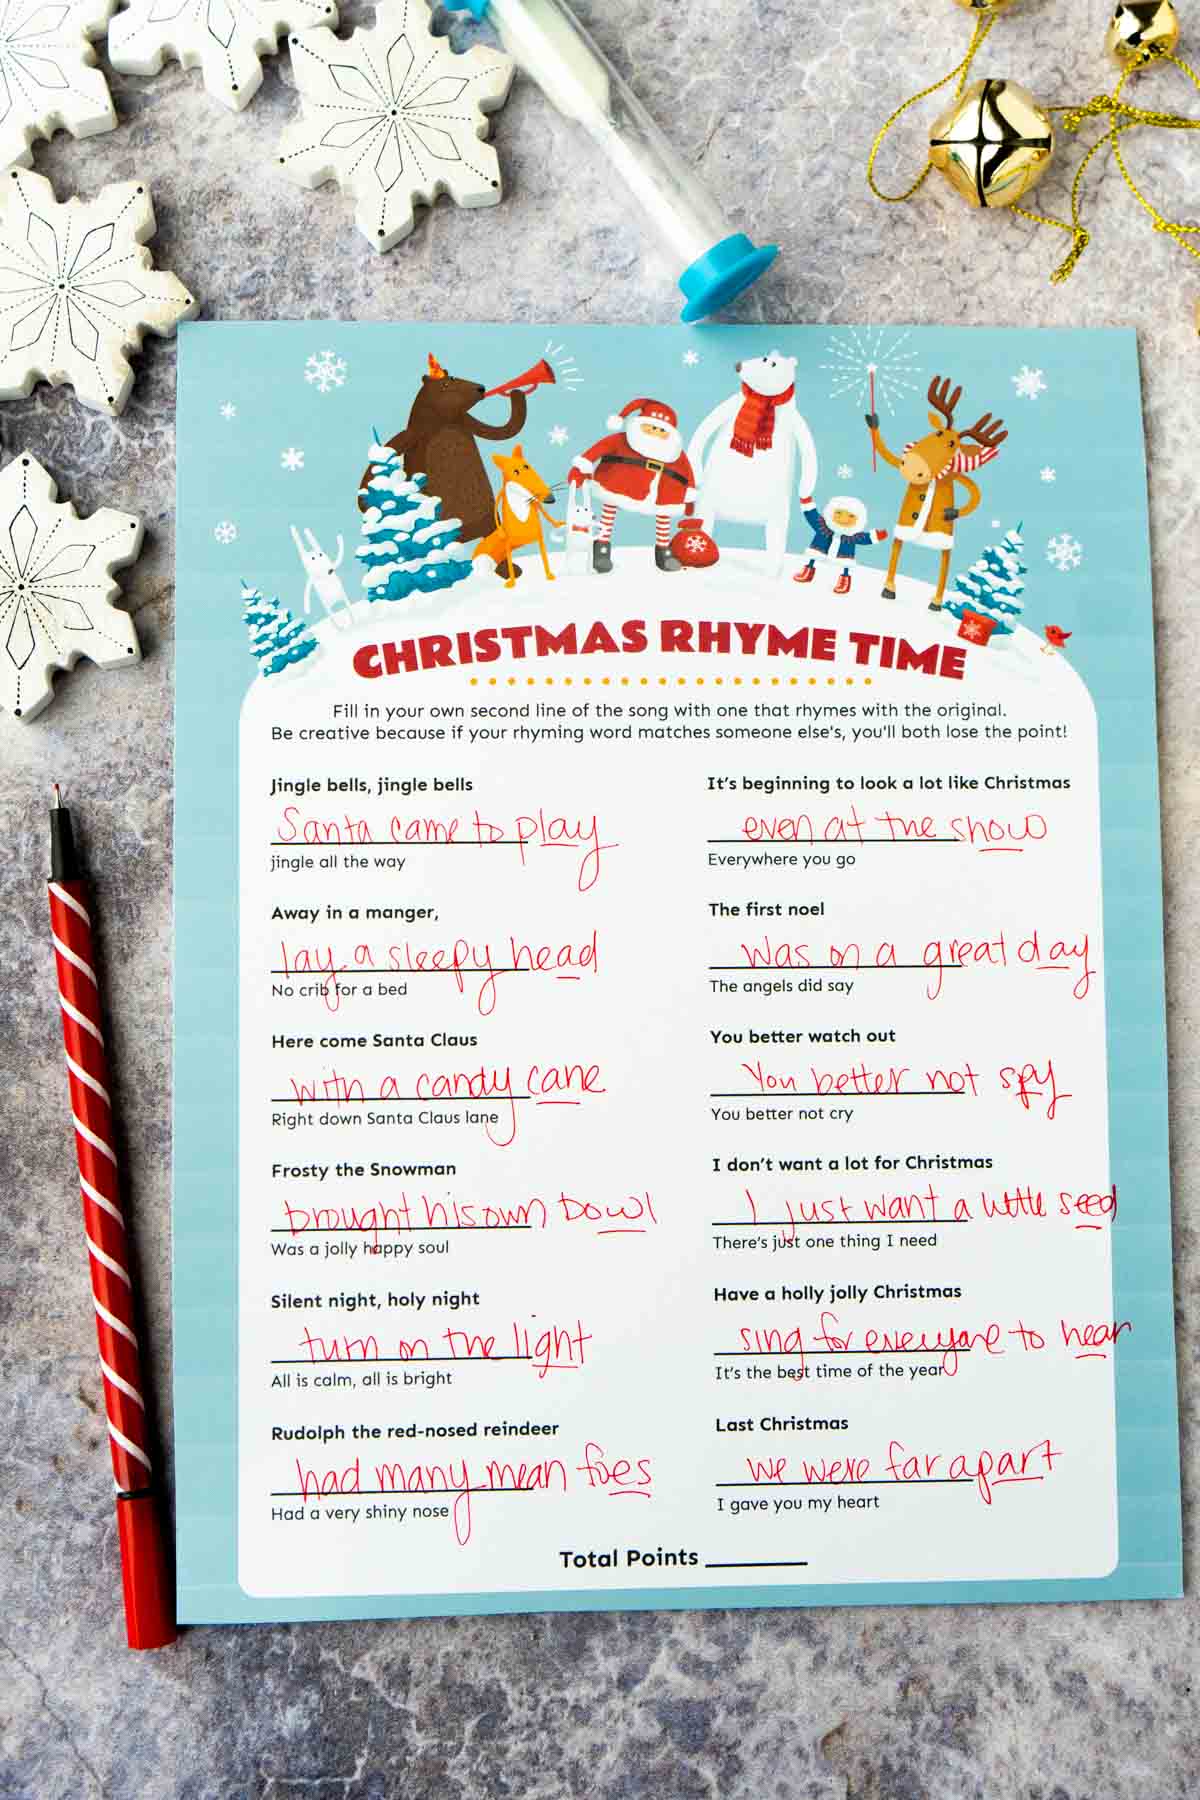 CHRISTMAS RHYME TIME
Fill in your own second line of the song with one that rhymes with the original.
Be creative because if your rhyming word matches someone else's, you'll both lose the point!
Jingle bells, jingle bells
Santa came to play
jingle all the way
Away in a manger,
lay a sleepy head
No crib for a bed
Here come Santa Claus
with a candy cane
Right down Santa Claus lane
Frosty the Snowman
brought his own bowl
Was a jolly happy soul
Silent night, holy night
turn on the light
All is calm, all is bright
Rudolph the red-nosed reindeer
had many mean foes
Had a very shiny nose
It's beginning to look a lot like Christmas
even at the show
Everywhere you go
The first noel
was on a great day
The angels did say
You better watch out
You better not spy
You better not cry
I don't want a lot for Christmas
I just want a little seed
There's just one thing I need
Have a holly jolly Christmas
sing for everyone to hear
It's the best time of the year
Last Christmas
we were far apart
I gave you my heart
Total Points